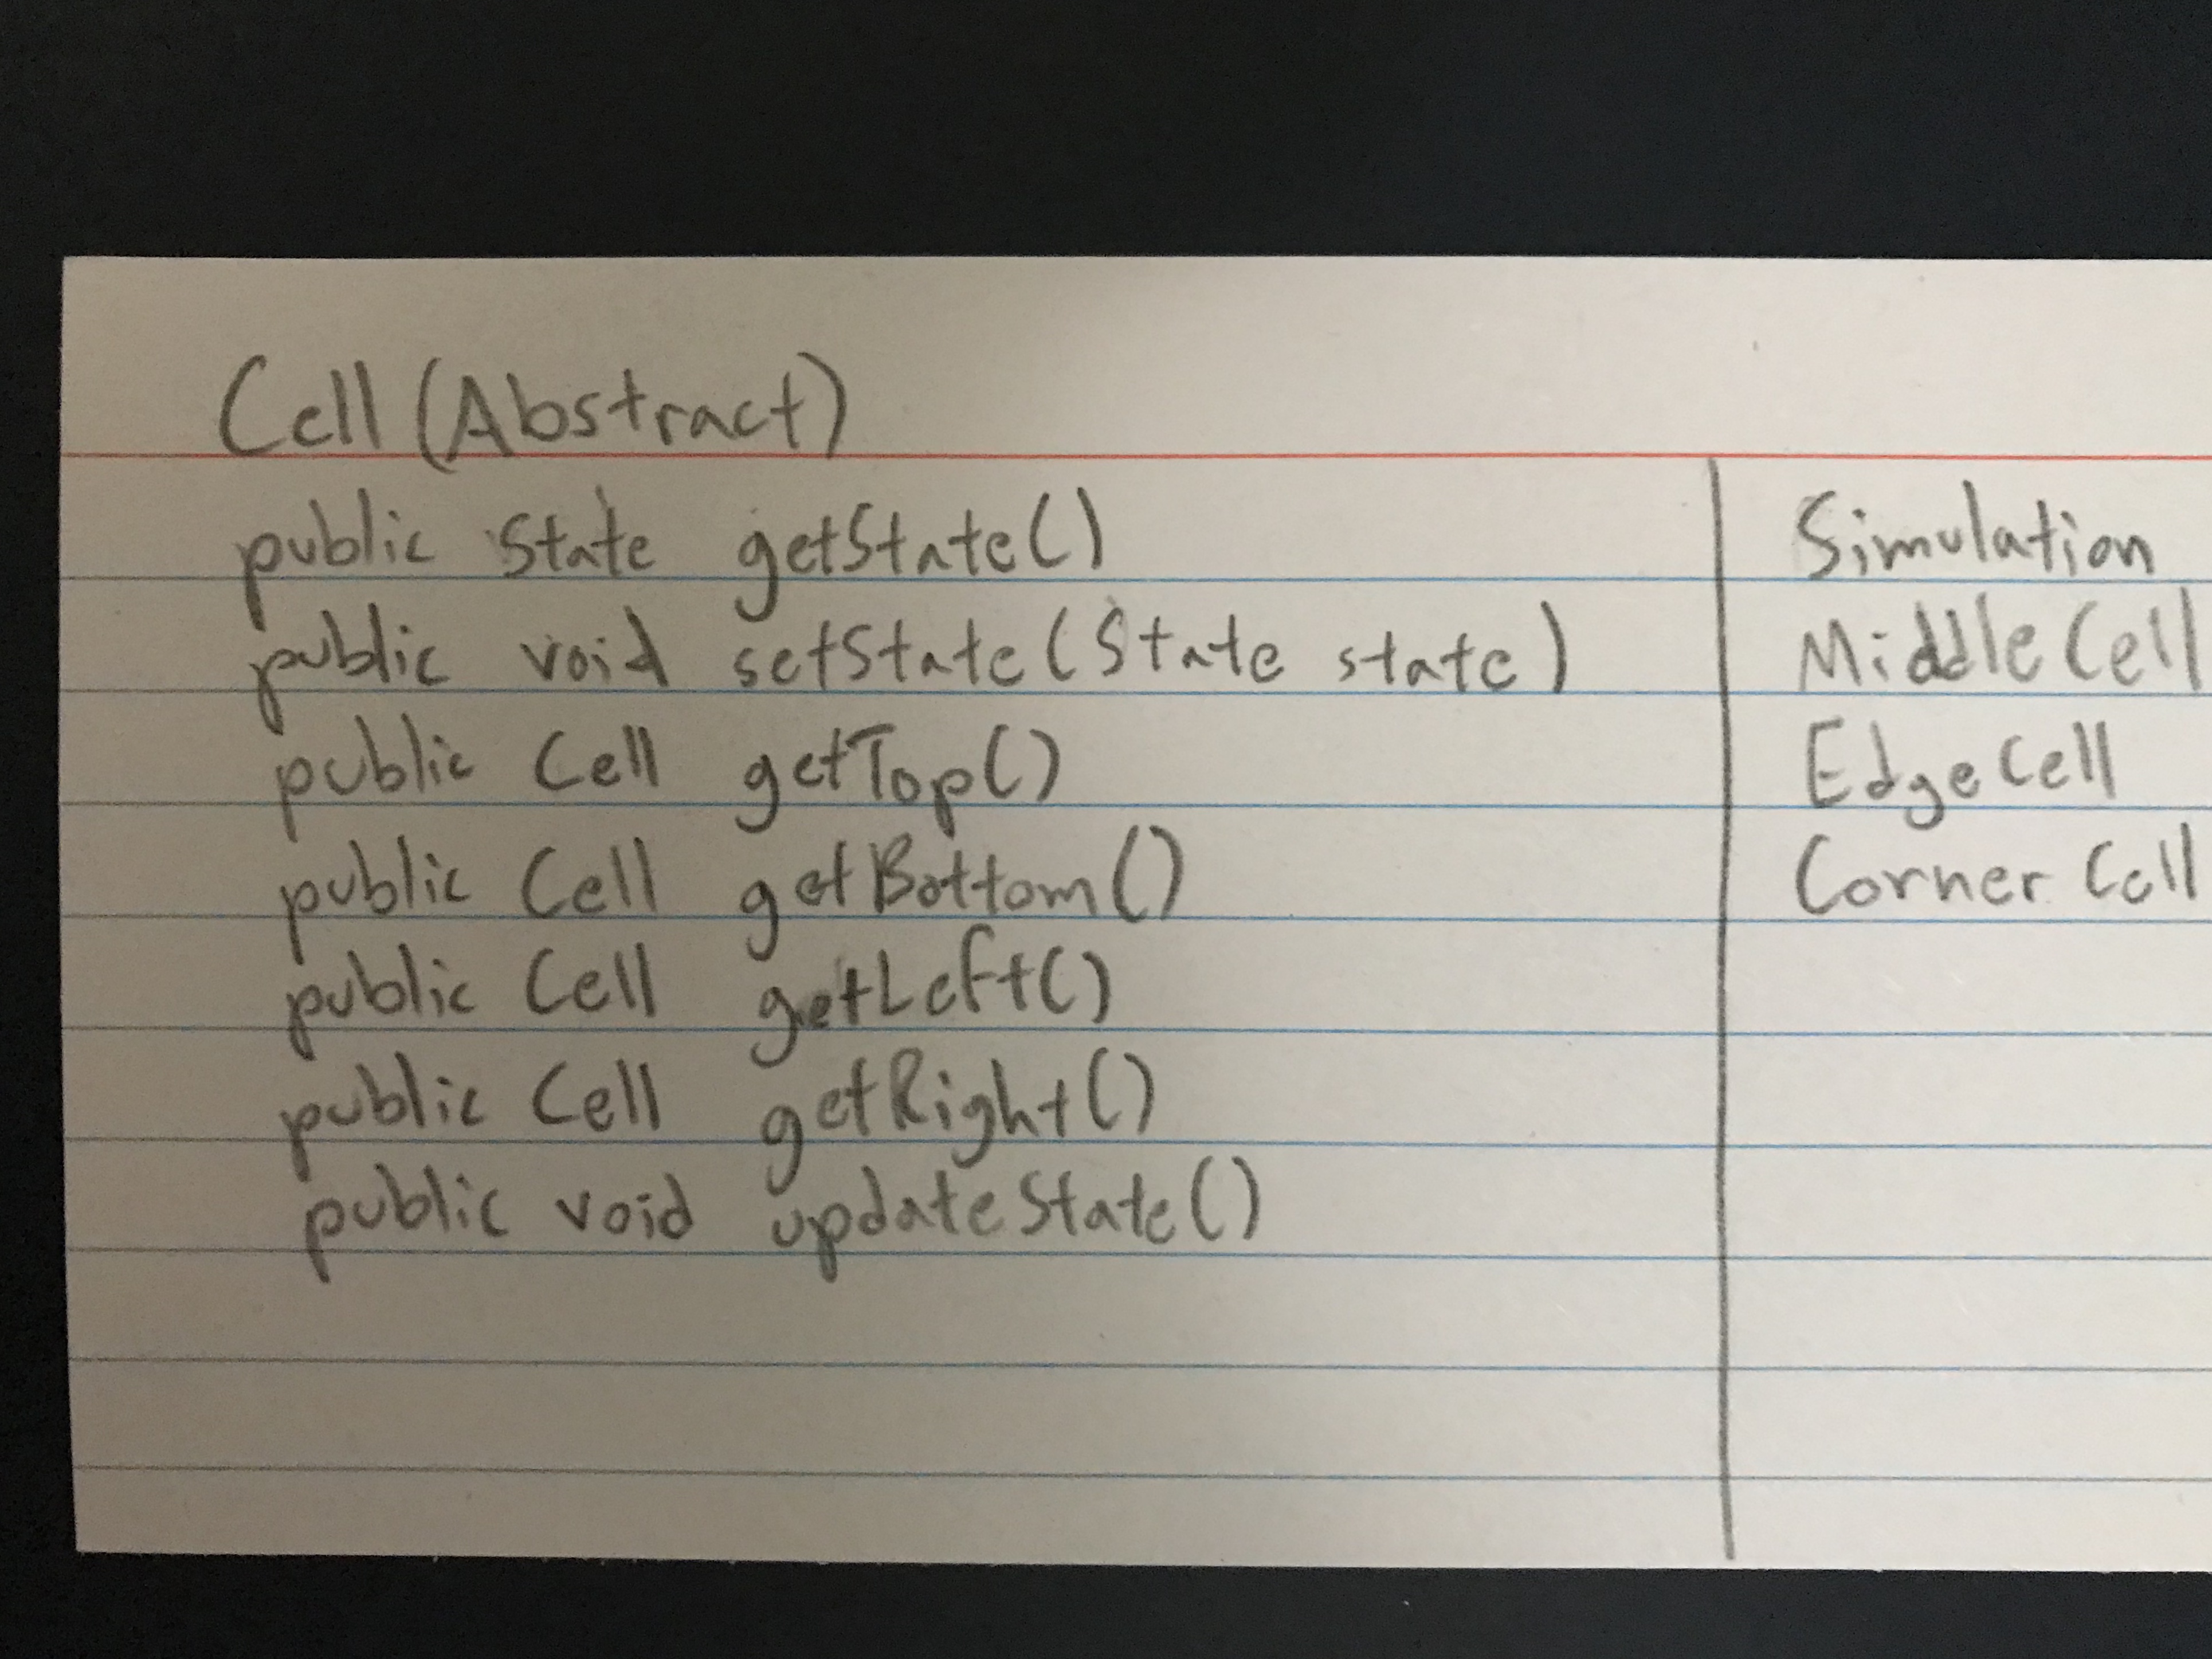 Cell (Abstract)
public State getState()
public void setState(State state)
public Cell getTop()
public Cell getBottom()
public Cell getLeft()
public Cell getRight()
public void updateState()
Simulation
Middle Cell
Edge Cell
Corner Cell